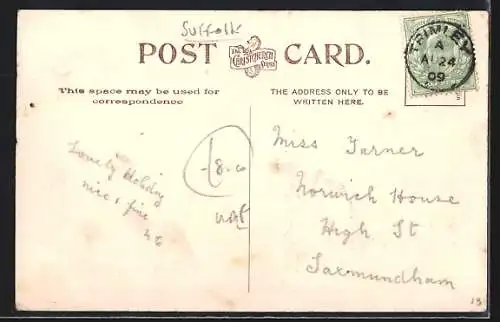 Suffolk
POST CARD.
THE
CHRISTCHURCH
PRESS
This space may be used for
correspondence
THE ADDRESS ONLY TO BE
WRITTEN HERE.
TRIMLEY
A
AU 24
09
Lovely Holiday
nice & fine
Miss Turner
Norwich House
High St
Saxmundham
13